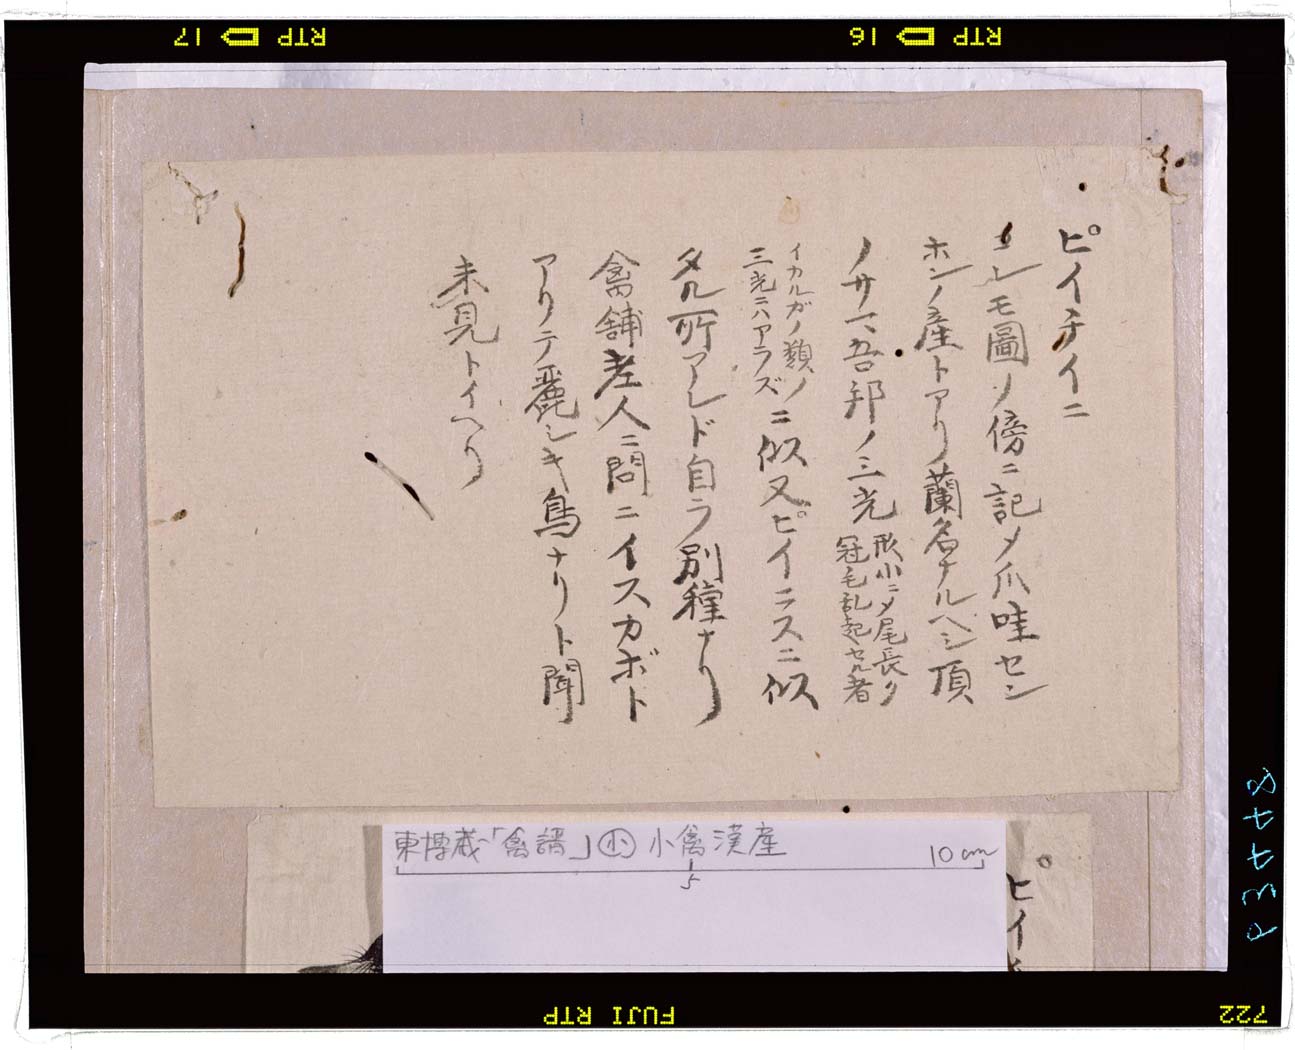 ピイチイニ
是レモ圖ノ傍ニ記メ爪哇セシ
ホンノ産トアリ蘭名ナルベシ頂
ノサマ吾邦ノ三光
形小ニメ尾長ク
冠毛乱起セル者
イカルガノ類ノ
三光ニハアラズ
ニ似又ピイニスニ似
タル所アレド自ラ別種ナリ
禽舗老人ニ問ニイスカボト
アリテ麗シキ鳥ナリト聞
未見トイヘリ
東博蔵「禽譜」㋭小禽漢産
10 cm
5
ピイ
RTP 17
RTP 16
FUJI RTP
722
P3448